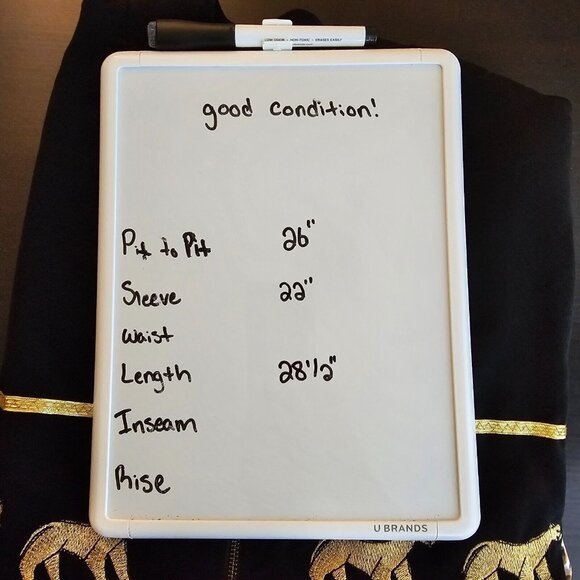 LOW ODOR • NON-TOXIC • ERASES EASILY
good condition!
Pit to Pit 26"
Sleeve 22"
Waist
Length 28 1/2"
Inseam
Rise
U BRANDS